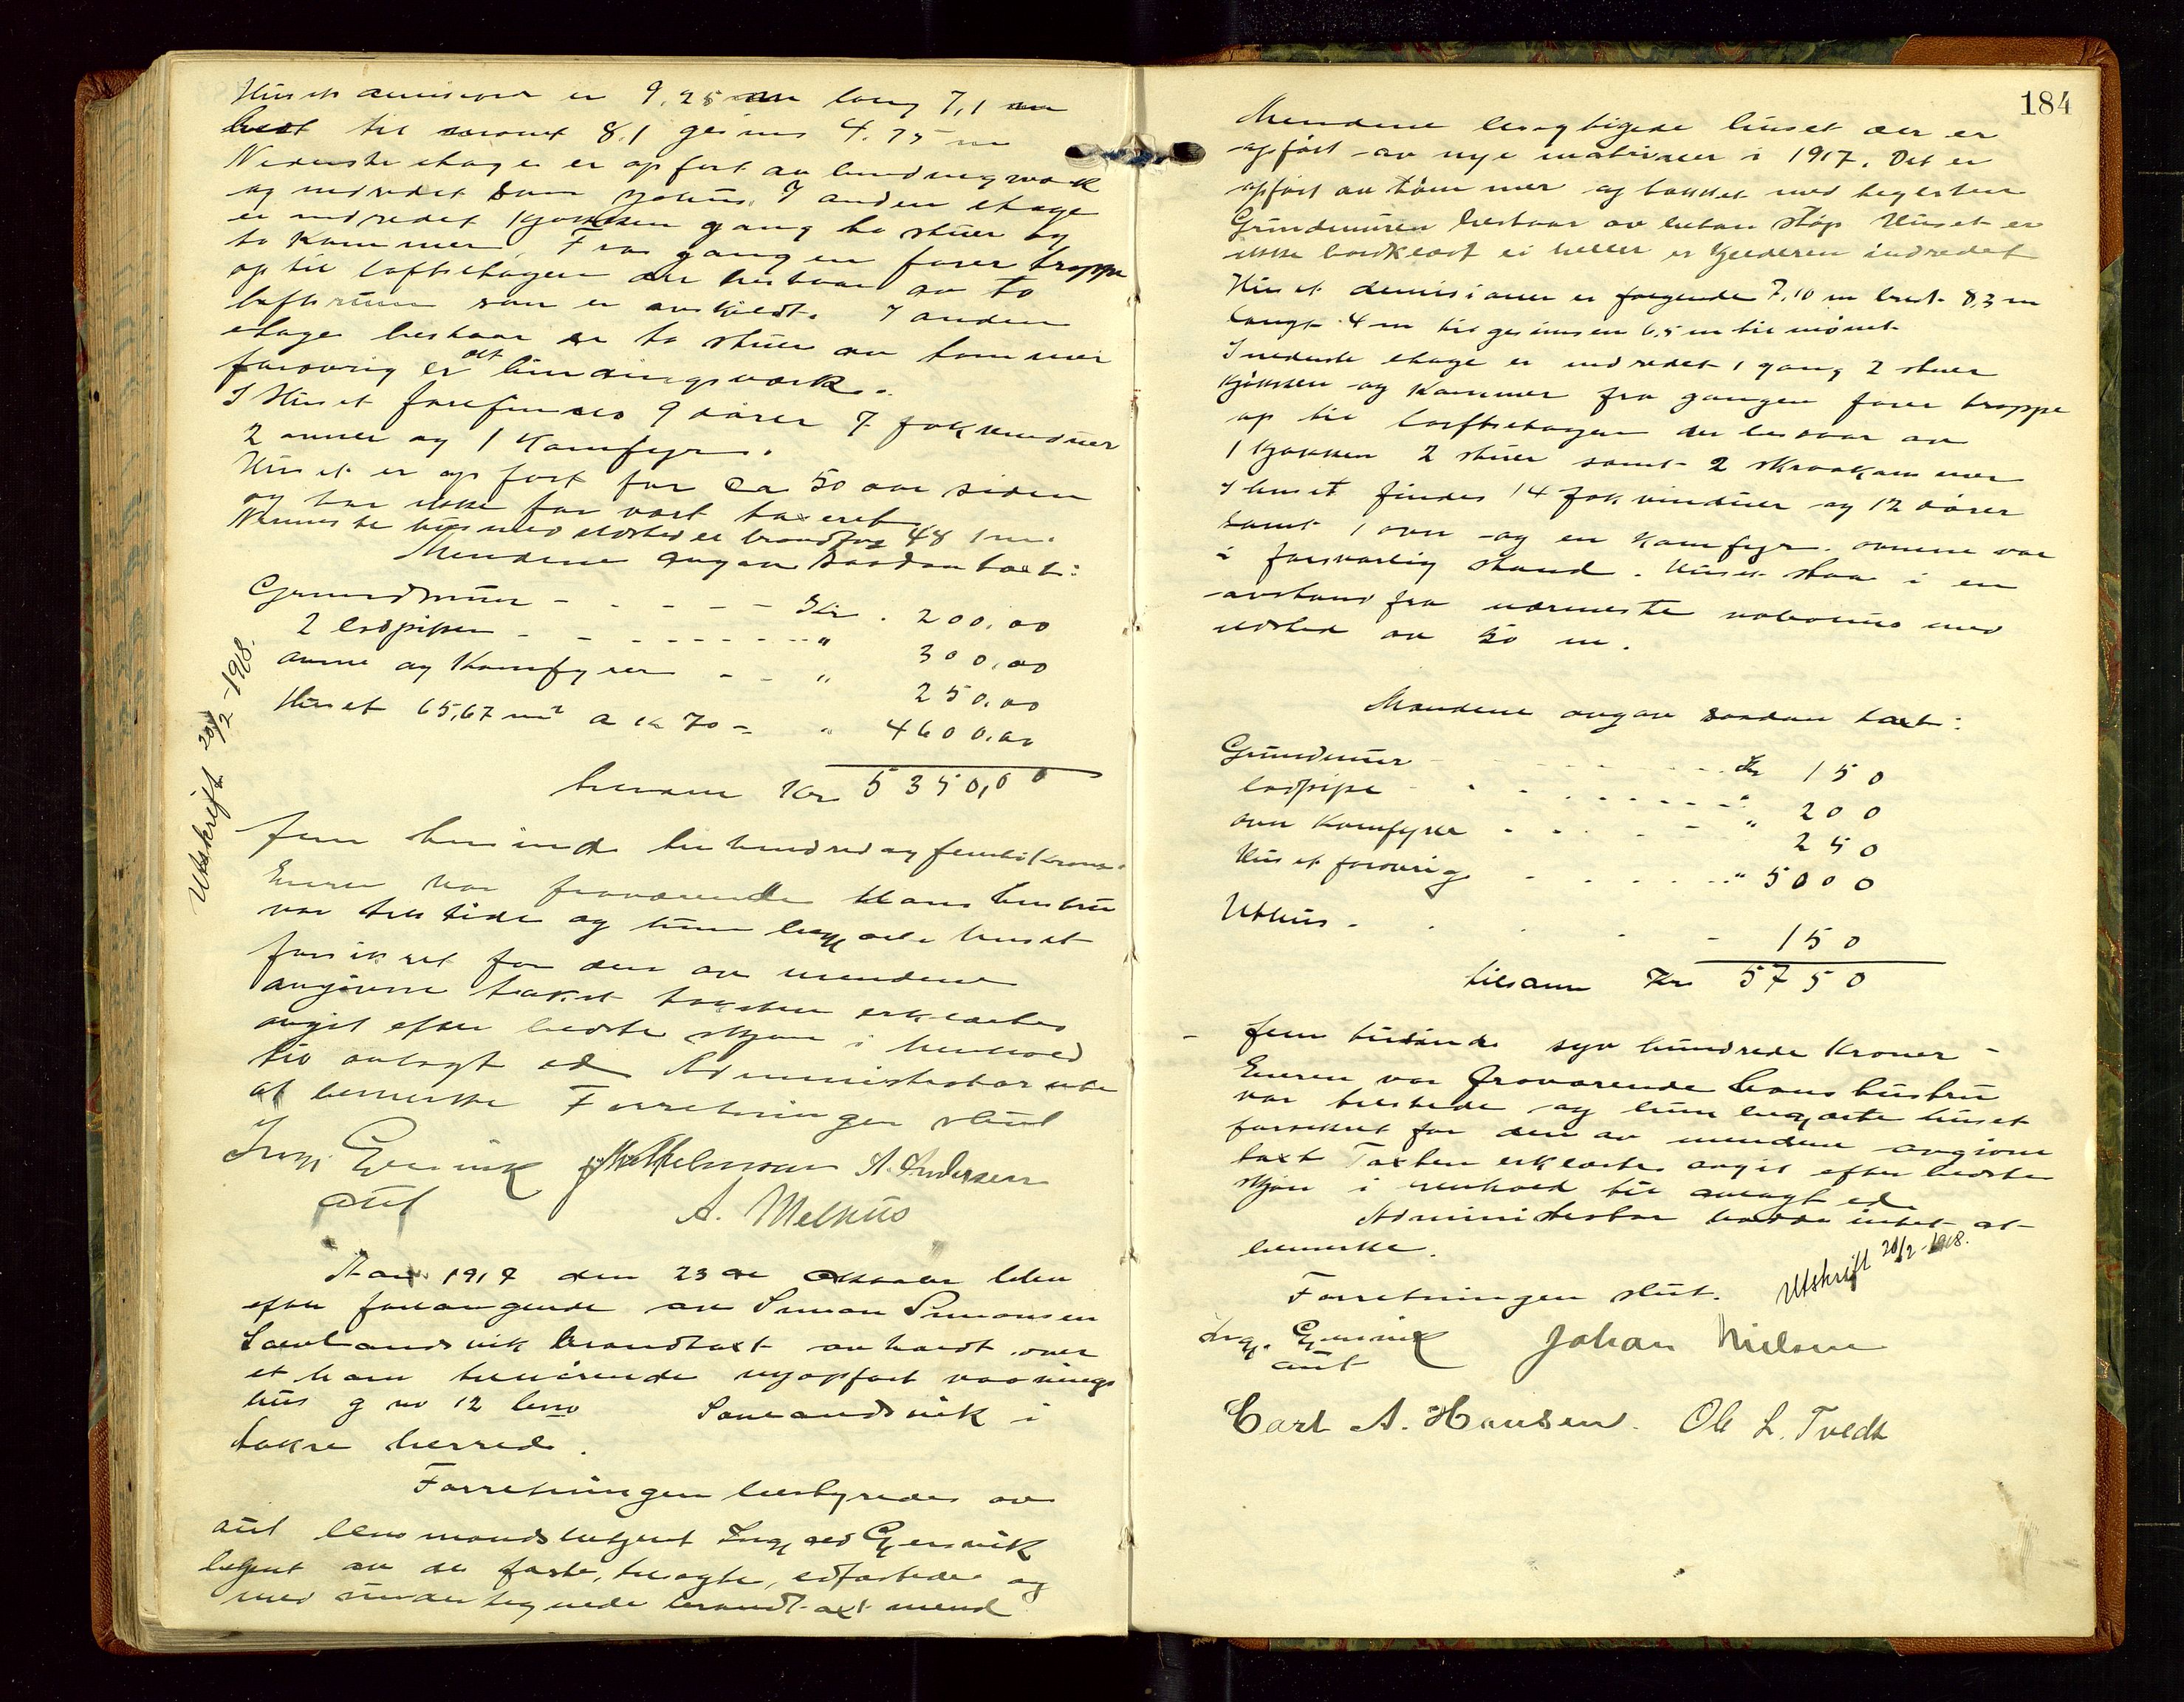 Husets demisioner er 9,25 m lang 7,1 m
bredt til mønet 8.1 gesims 4.75 m
Nederste etage er opført av bindingsverk
og indredet som sjøhus. I anden etage
er indredet kjøkken gang to stuer og
to kammer. Fra gangen fører trappe
op til loftsetagen der bestaar av to
loftsrum som er avskildt. I anden
etage bestaar er to stuer av tømmer
forøvrig er alt bindingsverk.
I Huset forefindes 9 dører 7 fok vinduer
2 ovner og 1 Komfyr.
Huset er opført for ca 50 aar siden
og har ikke før vært taxeret
Nermeste hus med ildsted er brandfag 48 1 m.
Mendene avgav saadan taxt:
Grundmur - - - - - Kr. 200,00
2 ladpiper - - - - - - " 300,00
ovne og Komfyrer - - " 250,00
Huset 65,67 m² a kr 70 = " 4600,00
tilsam Kr 5350,00
Utskrift 20/2-1918.
fem tusinde tre hundred og femti kroner
Eieren var fraværende Hans hustru
var tilstede og hun begjærte huset
forsikret for den av mendene
avgivne takst taksten erklærtes
avgit efter bedste skjøn i henhold
til avlagt ed Administrator intet
at bemerke Forretningen slut
Ingv. Gjersvik A. Andersen
aut A. Melhus
Aar 1917 den 23 de Oktober blev
efter forlangende av Simon Simonsen
Sørlandsvik brandtaxt avholdt over
et ham tilhørende nyopført vaanings
hus g no 12 bno Sørlandsvik i
bokn herred.
Forretningen bestyredes av
aut lensmandsbetjent Ingvald Gjersvik
betjent av de faste, beagte, edfæstede og
med undertegnede brandtaxtmend
184
Mendene besigtigede huset der er
opført av nye matrialer i 1917. Det er
opført av tømmer og tækket med teglsten
Grundmuren bestaar av beton støp Huset er
ikke bordklædt ei heller er kjelderen indredet
Huset demisioner er følgende 7,10 m bredt 8,3 m
langt 4 m til gesimsen 6,5 m til mønet
I nederste etage er indredet 1 gang 2 stuer
kjøkken og kammer fra gangen fører trappe
op til loftsetagen der bestaar av
1 kjøkken 2 stuer samt 2 skraakammer
I huset findes 14 fok vinduer og 12 dører
samt 1 ovn og en Komfyr. ovnene var
i forsvarlig stand. Huset staar i en
avstand fra nærmeste nabohus med
ildsted av 50 m.
Mendene avgav saadan taxt:
Grundmur - - - - Kr 150
ladpipe - - - - - " 200
ovn Komfyr - - - - " 250
Huset forøvrig - - - - " 5000
Uthus - - - - 150
tilsam Kr 5750
- fem tusinde syv hundrede Kroner -
Eieren var fraværende hans hustru
var tilstede og hun begjærte huset
forsikret for den av mendene avgivne
taxt Taxten erklærtes avgit efter bedste
skjøn i henhold til avlagt ed
Administrator hadde intet at
bemerke.
Utskrift 20/2-1918.
Forretningen slut.
Ingv. Gjersvik Johan Nielsen
aut
Carl A. Hansen. Ole L. Tvedt